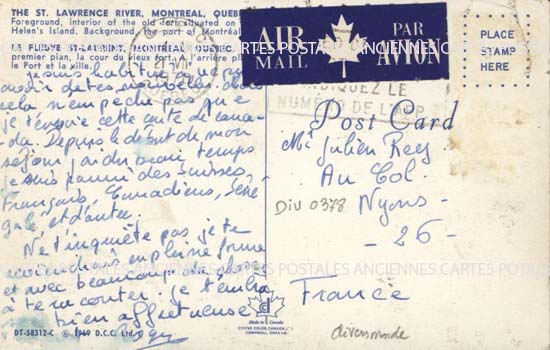 THE ST. LAWRENCE RIVER, MONTREAL, QUEBEC
Foreground, interior of the old fort situated on
Helen's Island. Background the port of Montréal
LE FLEUVE ST-LAURENT, MONTRÉAL, QUÉBEC,
premier plan, la cour du vieux fort. A l'arrière plan
le Port et la ville.
je suis habitué à ne pas
avoir de tes nouvelles, mais
cela n'empêche pas que
je t'envoie cette carte de Cana-
da. Depuis le début de mon
séjour j'ai du beau temps
je suis parmi des Suisses,
Français, Canadiens, Séné
galais et d'autres.
Ne t'inquiète pas je te
reviendrai en pleine forme
et avec beaucoup de choses
à te raconter. je t'embra
bien affectueuse
DT-58312-C © 1969 D.C.C. Ltd.
Made in Canada
DEXTER COLOR, CANADA, L
CORNWALL, ONTARIO
AIR MAIL
PAR AVION
PLACE
STAMP
HERE
INDIQUEZ LE
NUMÉRO DE
Post Card
Mr Julien Rey
Au Col.
DIV 0378
Nyons
- 26 -
France
diversmonde
CARTES POSTALES ANCIENNES CARTES POSTALES ANCIENNES CARTES
CARTES POSTALES ANCIENNES CARTES POTALES